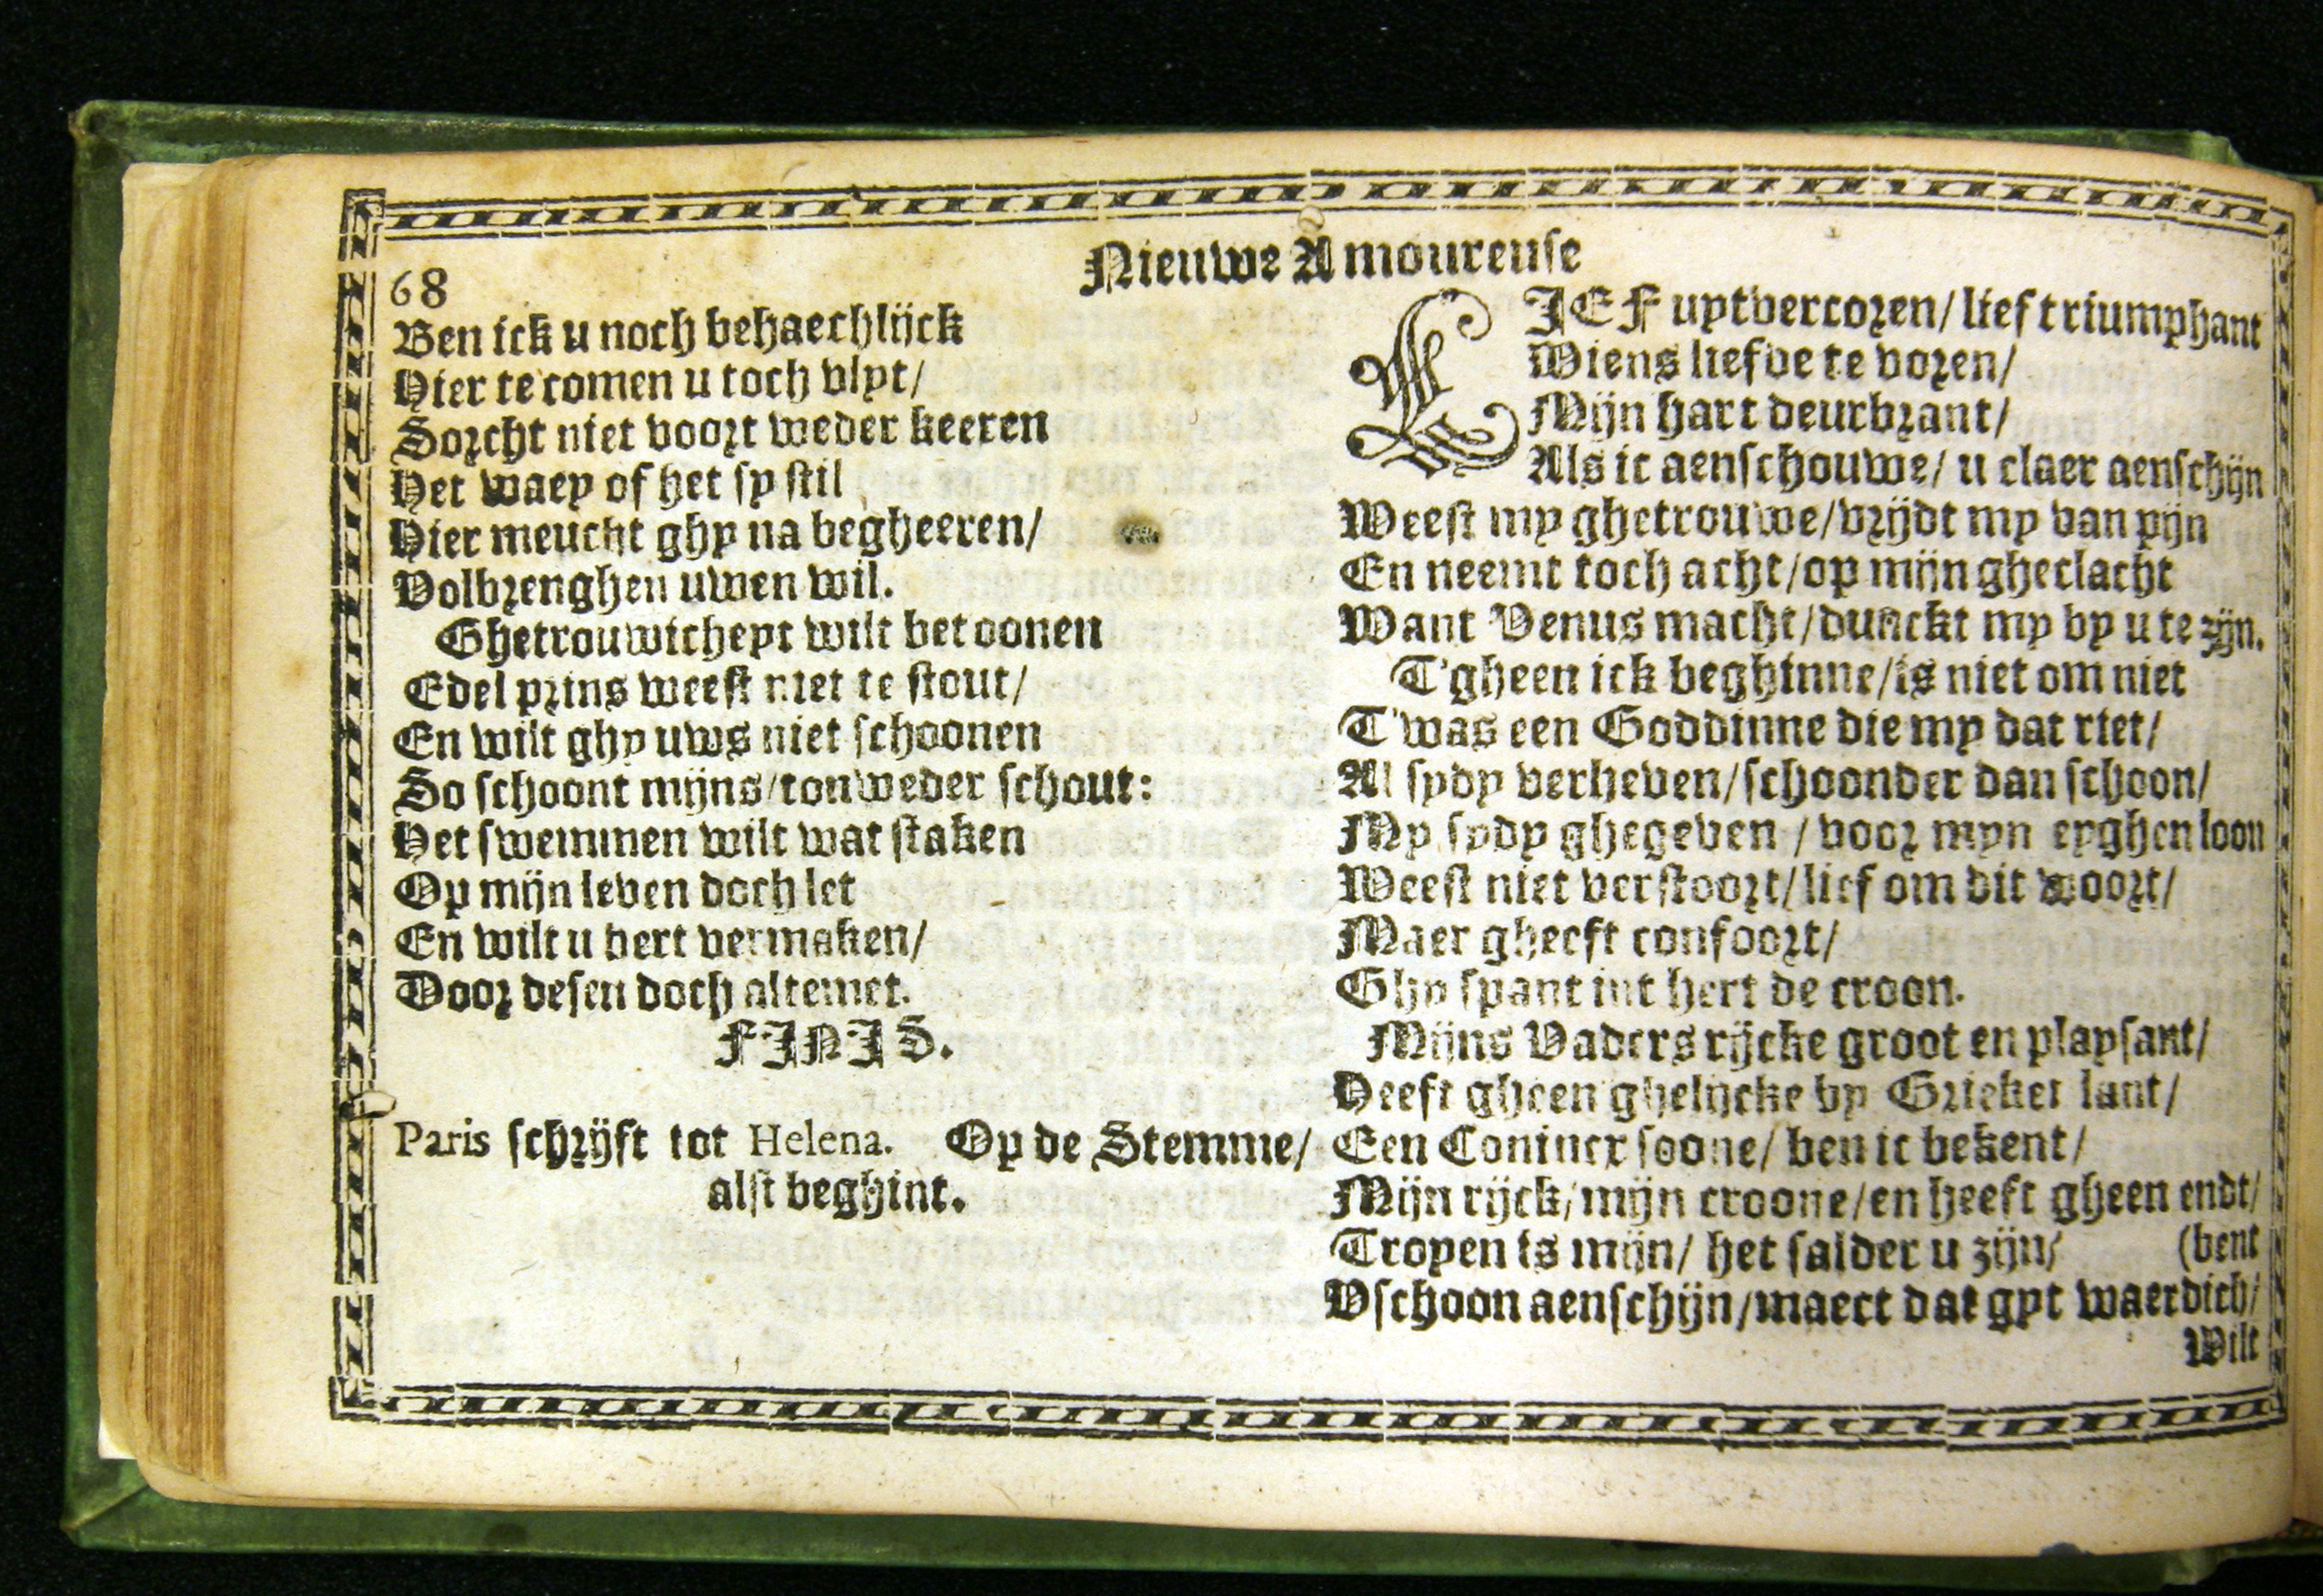 68
Nieuwe Amoureuse
Ben ick u noch behaechlijck
Hier te comen u toch vlyt/
Sorcht niet voort weder keeren
Het waey of het sy stil
Hier meucht ghy na begheeren/
Volbrenghen uwen wil.
Ghetrouwicheyt wilt betoonen
Edel prins weest niet te stout/
En wilt ghy uws niet schoonen
So schoont mijns/tonweder schout:
Het swemmen wilt wat staken
Op mijn leven doch let
En wilt u hert vermaken/
Door desen doch altemet.
FINIS.
Paris schrijft tot Helena. Op de Stemme/
alst beghint.
LIEF uytvercoren/ lief triumphant
Wiens liefde te voren/
Mijn hart deurbrant/
Als ic aenschouwe/ u claer aenschijn
Weest my ghetrouwe/vrijdt my van pijn
En neemt toch acht/op mijn gheclacht
Want Venus macht/dunckt my by u te zijn.
T'gheen ick beghinne/is niet om niet
T'was een Goddinne die my dat riet/
Al sydy verheven/schoonder dan schoon/
My sydy ghegeven / voor myn eyghen loon
Weest niet verstoort/lief om dit woort/
Maer gheeft confoort/
Ghy spant int hert de croon.
Mijns Vaders rijcke groot en playsant/
Heeft gheen ghelijcke by Grieker lant/
Een Conincx soone/ ben ic bekent/
Mijn rijck/mijn croone/en heeft gheen endt/
Troyen is mijn/ het salder u zijn/ (bent
Vschoon aenschijn/maect dat gyt waerdich/
Wilt